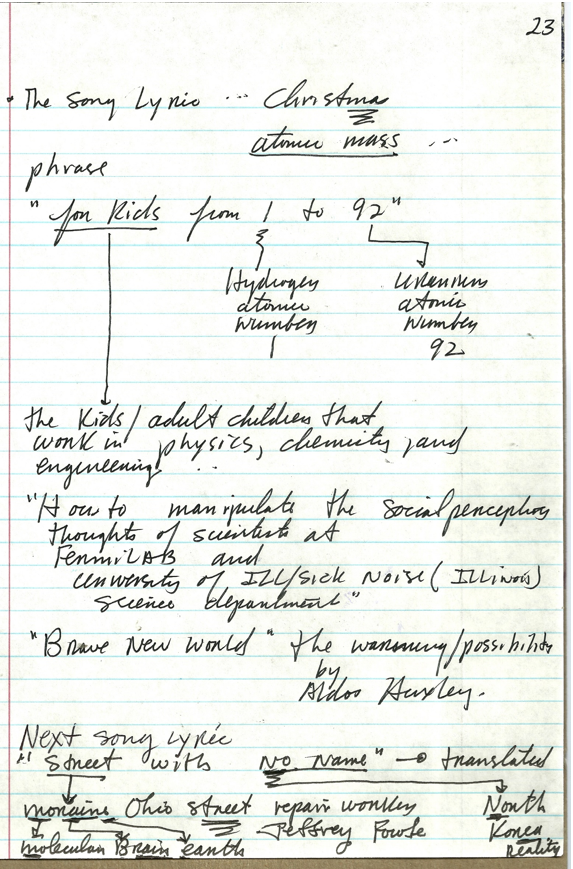 23
The song Lyric ... Christmas
atomic mass ...
phrase
"for Kids from 1 to 92"
Hydrogen Uranium
atomic atomic
number number
1 92
the Kids/adult children that
work in physics, chemistry, and
engineering ...
"How to manipulate the social perception
thoughts of scientists at
FermiLAB and
university of ILL/sick Noise (Illinois)
science department"
"Brave New World" the warning/possibility
by
Aldos Huxley.
Next song lyric
"Street with No Name" → translated
Ohio street repair worker North
Jeffrey Fowle Korea
molecular Brain earth Reality